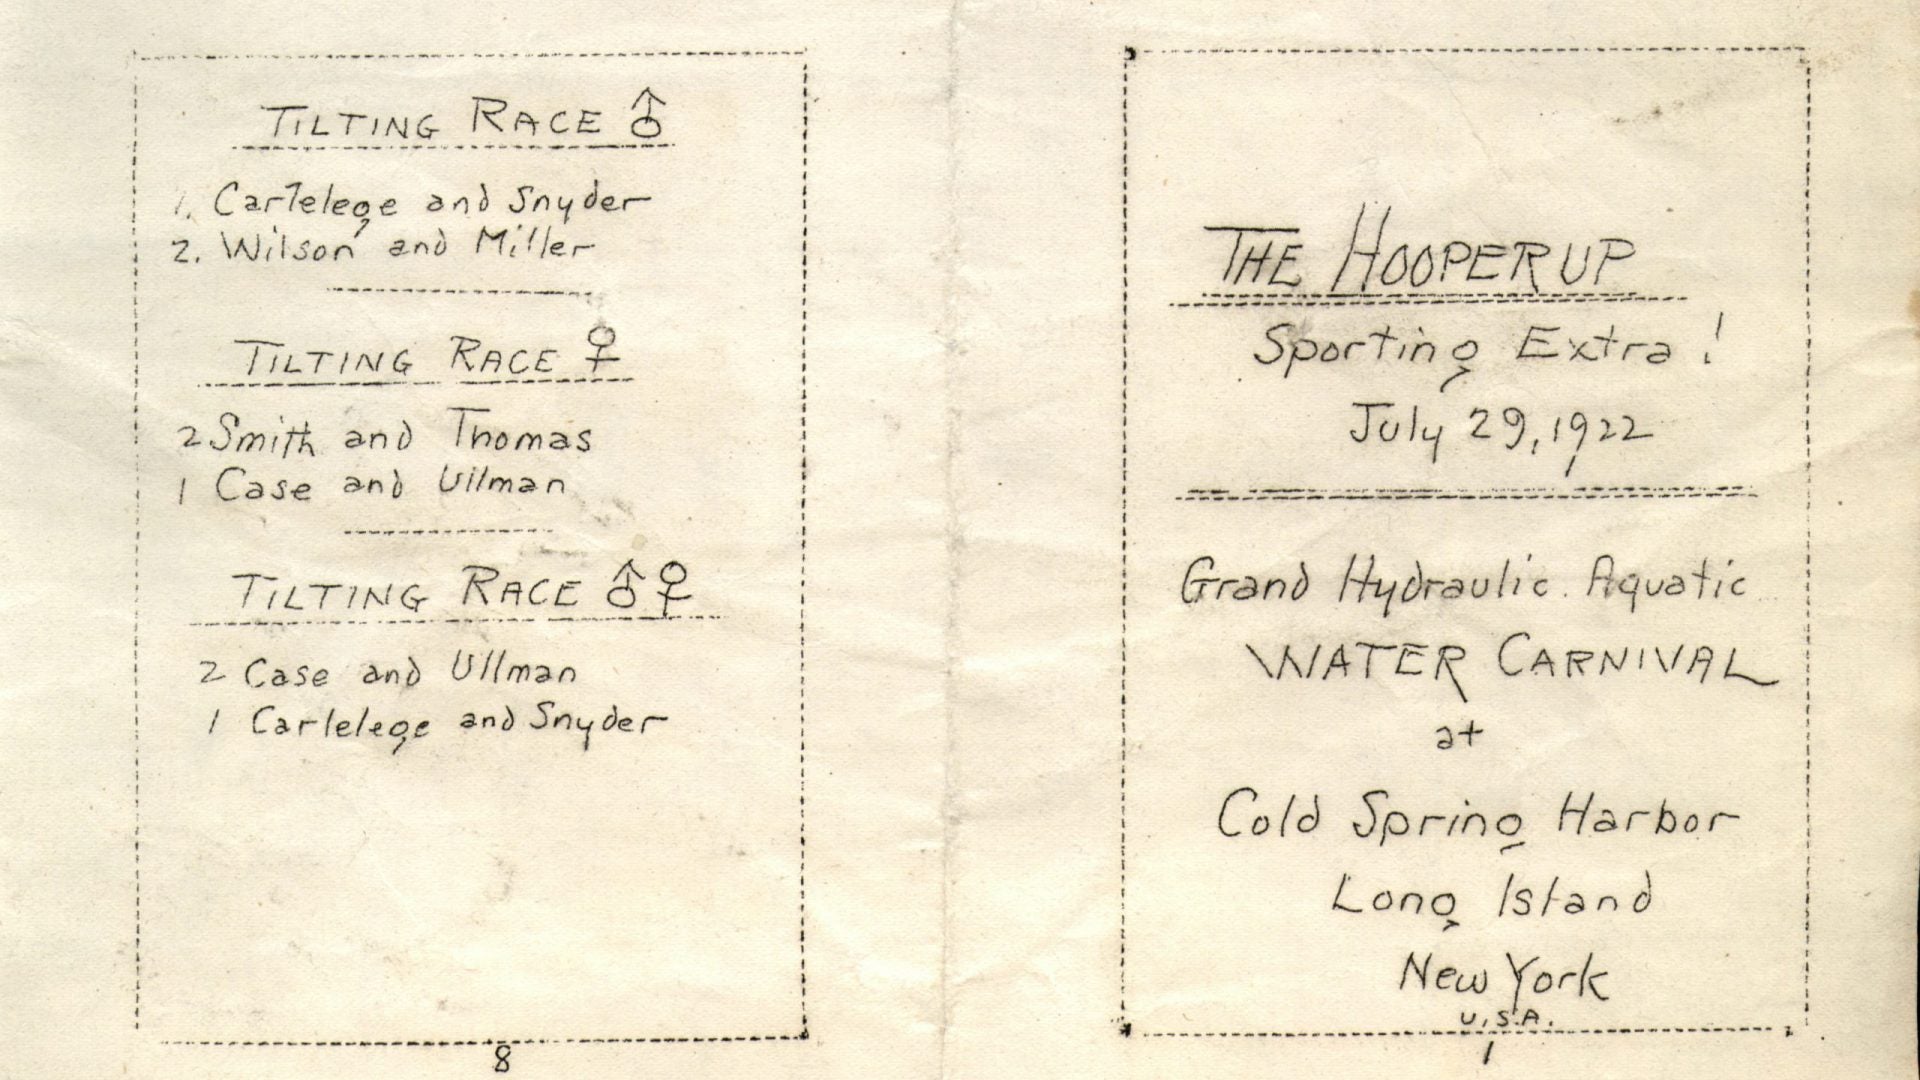 TILTING RACE ♂
1. Cartelege and Snyder
2. Wilson and Miller
TILTING RACE ♀
2 Smith and Thomas
1 Case and Ullman
TILTING RACE ♂♀
2 Case and Ullman
1 Carlelege and Snyder
8
THE HOOPERUP
Sporting Extra!
July 29, 1922
Grand Hydraulic. Aquatic
WATER CARNIVAL
at
Cold Spring Harbor
Long Island
New York
U.S.A.
1